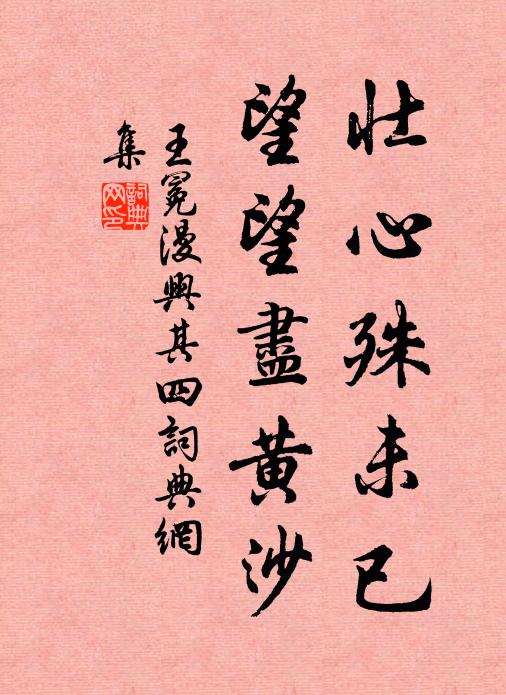 壯心殊未已
望望盡黃沙
王冕漫興其四詞典網
集
詞典
網印